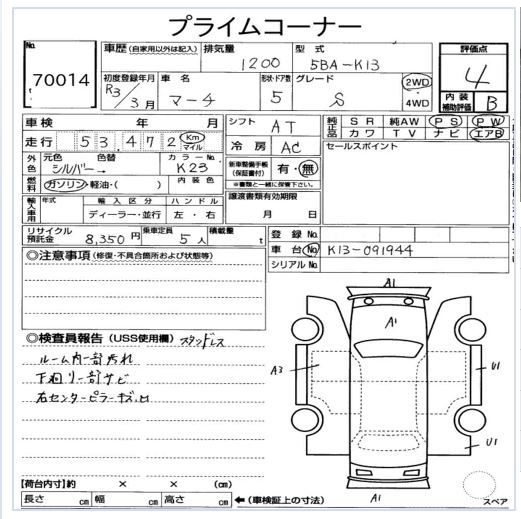 プライムコーナー
No.
70014
車歴(自家用以外は記入)
排気量
1200
型式
5BA-K13
評価点
4
初度登録年月
R3/3月
車名
マーチ
形状・ドア数
5
グレード
S
2WD
4WD
内装補助評価
B
車検 年 月
シフト
AT
純正品
SR 純AW PS PW
カワ TV ナビ エアB
走行 53,472 Km マイル
冷房
AC
セールスポイント
外色
元色 色替
シルバー→
カラーNo.
K23
新車整備手帳(保証書付)
有・無
※書類と一緒に保管下さい。
燃料
ガソリン・軽油・( )
内装色
譲渡書類有効期限
月 日
輸入車用
年式
輸入区分
ディーラー・並行
ハンドル
左・右
リサイクル預託金
8,350円
乗車定員
5人
積載量
t
登録No.
車台No.
K13-091944
シリアルNo.
◎注意事項(修復・不具合箇所および状態等)
◎検査員報告(USS使用欄)
スタッドレス
ルーム内一部汚れ
下廻り一部サビ
右センターピラーキズ凹
A1
A1
A3
U1
U1
A1
スペア
【荷台内寸】約 × × (cm)
長さ cm 幅 cm 高さ cm ←(車検証上の寸法)